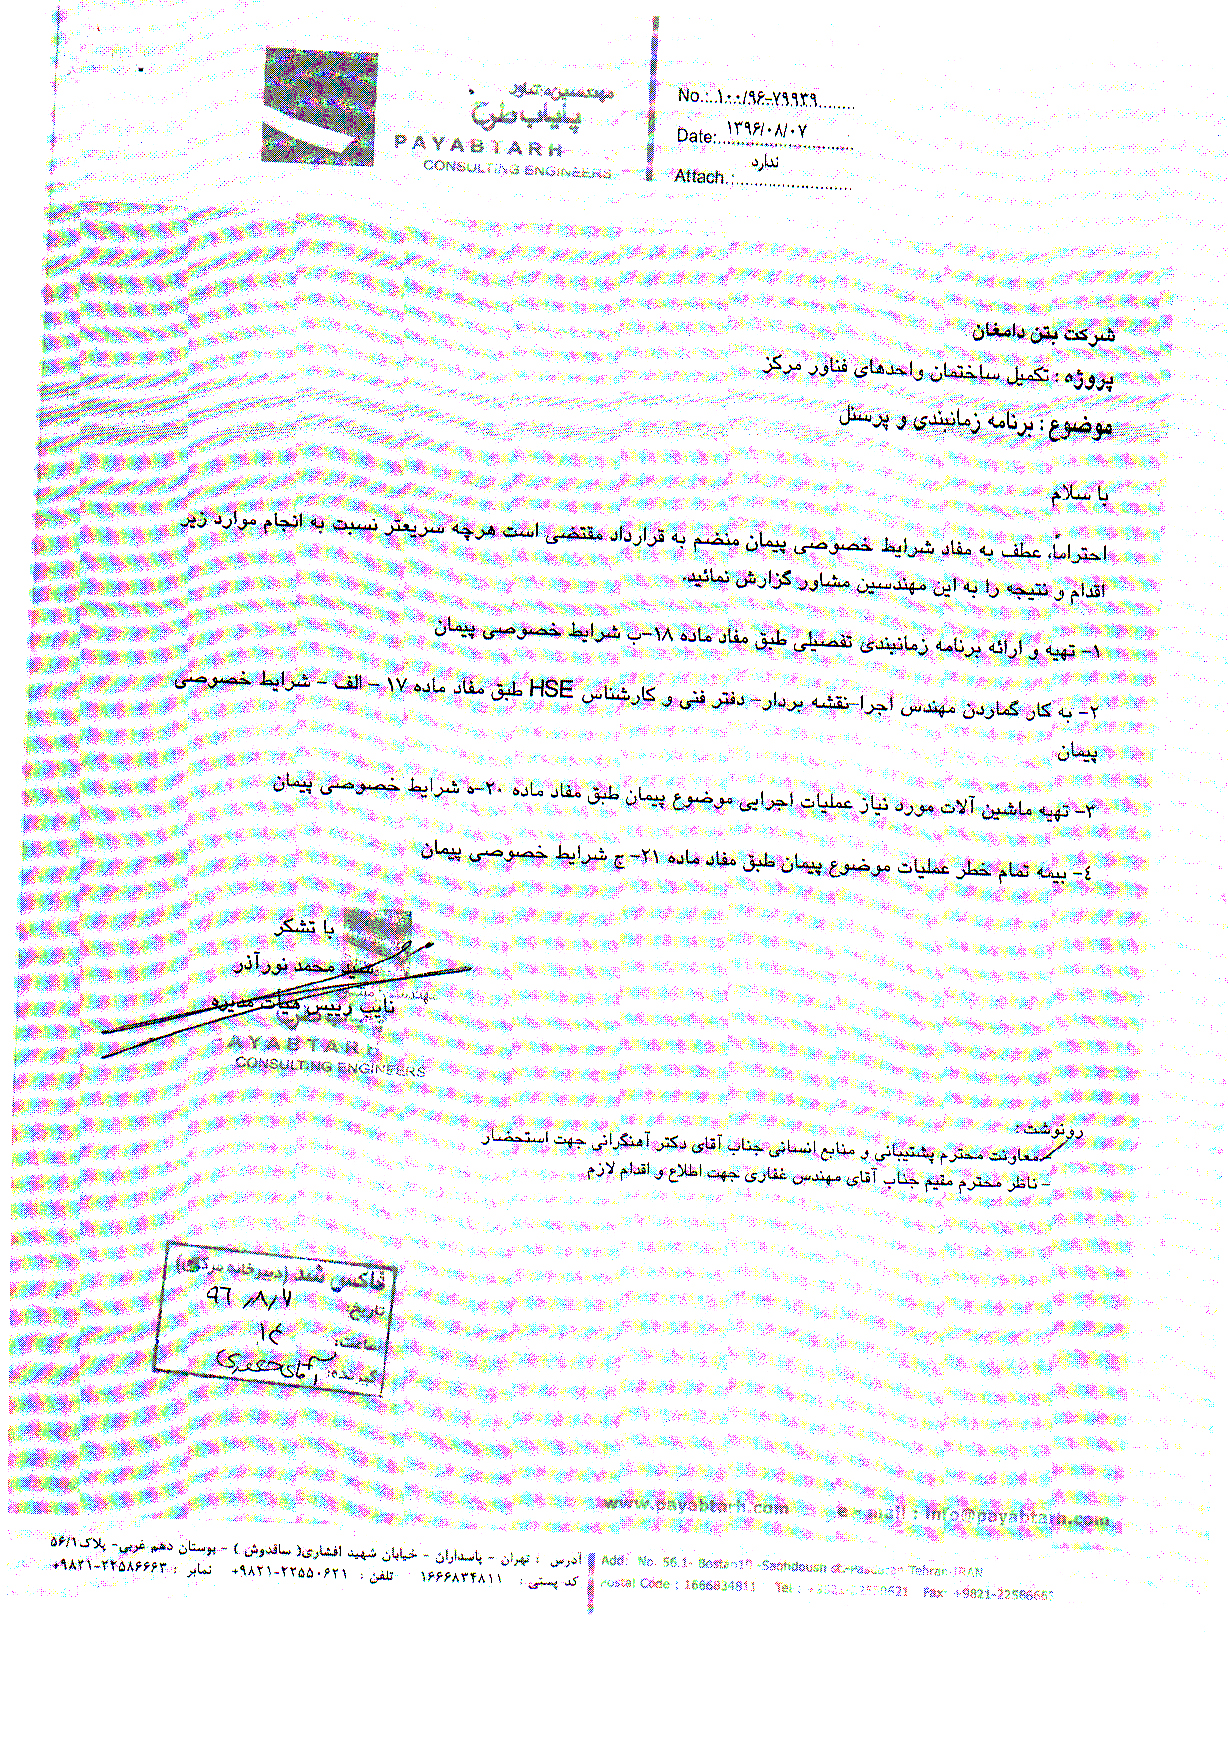 مهندسین مشاور
پایاب طرح
PAYABTARH
CONSULTING ENGINEERS
No.:..۱۰۰/۹۶-۷۹۹۳۹........
Date:..۱۳۹۶/۰۸/۰۷........
ندارد
Attach.:............................
شرکت بتن دامغان
پروژه : تکمیل ساختمان واحدهای فناور مرکز
موضوع : برنامه زمانبندی و پرسنل
با سلام
احتراماً، عطف به مفاد شرایط خصوصی پیمان منضم به قرارداد مقتضی است هرچه سریعتر نسبت به انجام موارد زیر
اقدام و نتیجه را به این مهندسین مشاور گزارش نمائید.
۱- تهیه و ارائه برنامه زمانبندی تفصیلی طبق مفاد ماده ۱۸-ب شرایط خصوصی پیمان
۲- به کار گماردن مهندس اجرا-نقشه بردار- دفتر فنی و کارشناس HSE طبق مفاد ماده ۱۷ – الف – شرایط خصوصی
پیمان
۳- تهیه ماشین آلات مورد نیاز عملیات اجرایی موضوع پیمان طبق مفاد ماده ۲۰-ه شرایط خصوصی پیمان
٤- بیمه تمام خطر عملیات موضوع پیمان طبق مفاد ماده ۲۱- ج شرایط خصوصی پیمان
با تشکر
سید محمد نورآذر
نایب رییس هیات مدیره
PAYABTARH
CONSULTING ENGINEERS
رونوشت :
معاونت محترم پشتیبانی و منابع انسانی جناب آقای دکتر آهنگرانی جهت استحضار
- ناظر محترم مقیم جناب آقای مهندس غفاری جهت اطلاع و اقدام لازم
فاکس شد (دبیرخانه مرکزی)
تاریخ: ۹۶/۸/۷
ساعت: ۱۴
گیرنده: آقای جعفری
www.payabtarh.com e-mail : info@payabtarh.com
آدرس : تهران - پاسداران - خیابان شهید افشاری( ساقدوش ) - بوستان دهم غربی- پلاک ۵۶/۱
کد پستی : ۱۶۶۶۸۳۴۸۱۱ تلفن : ۲۲۵۵۰۶۲۱-۹۸۲۱+ نمابر : ۲۲۵۸۶۶۶۳-۹۸۲۱+
Add.: No. 56.1- Bostan10 -Saghdoush st.-Pasdaran-Tehran-IRAN
Postal Code : 1666834811 Tel : +9821-22550621 Fax: +9821-22586663